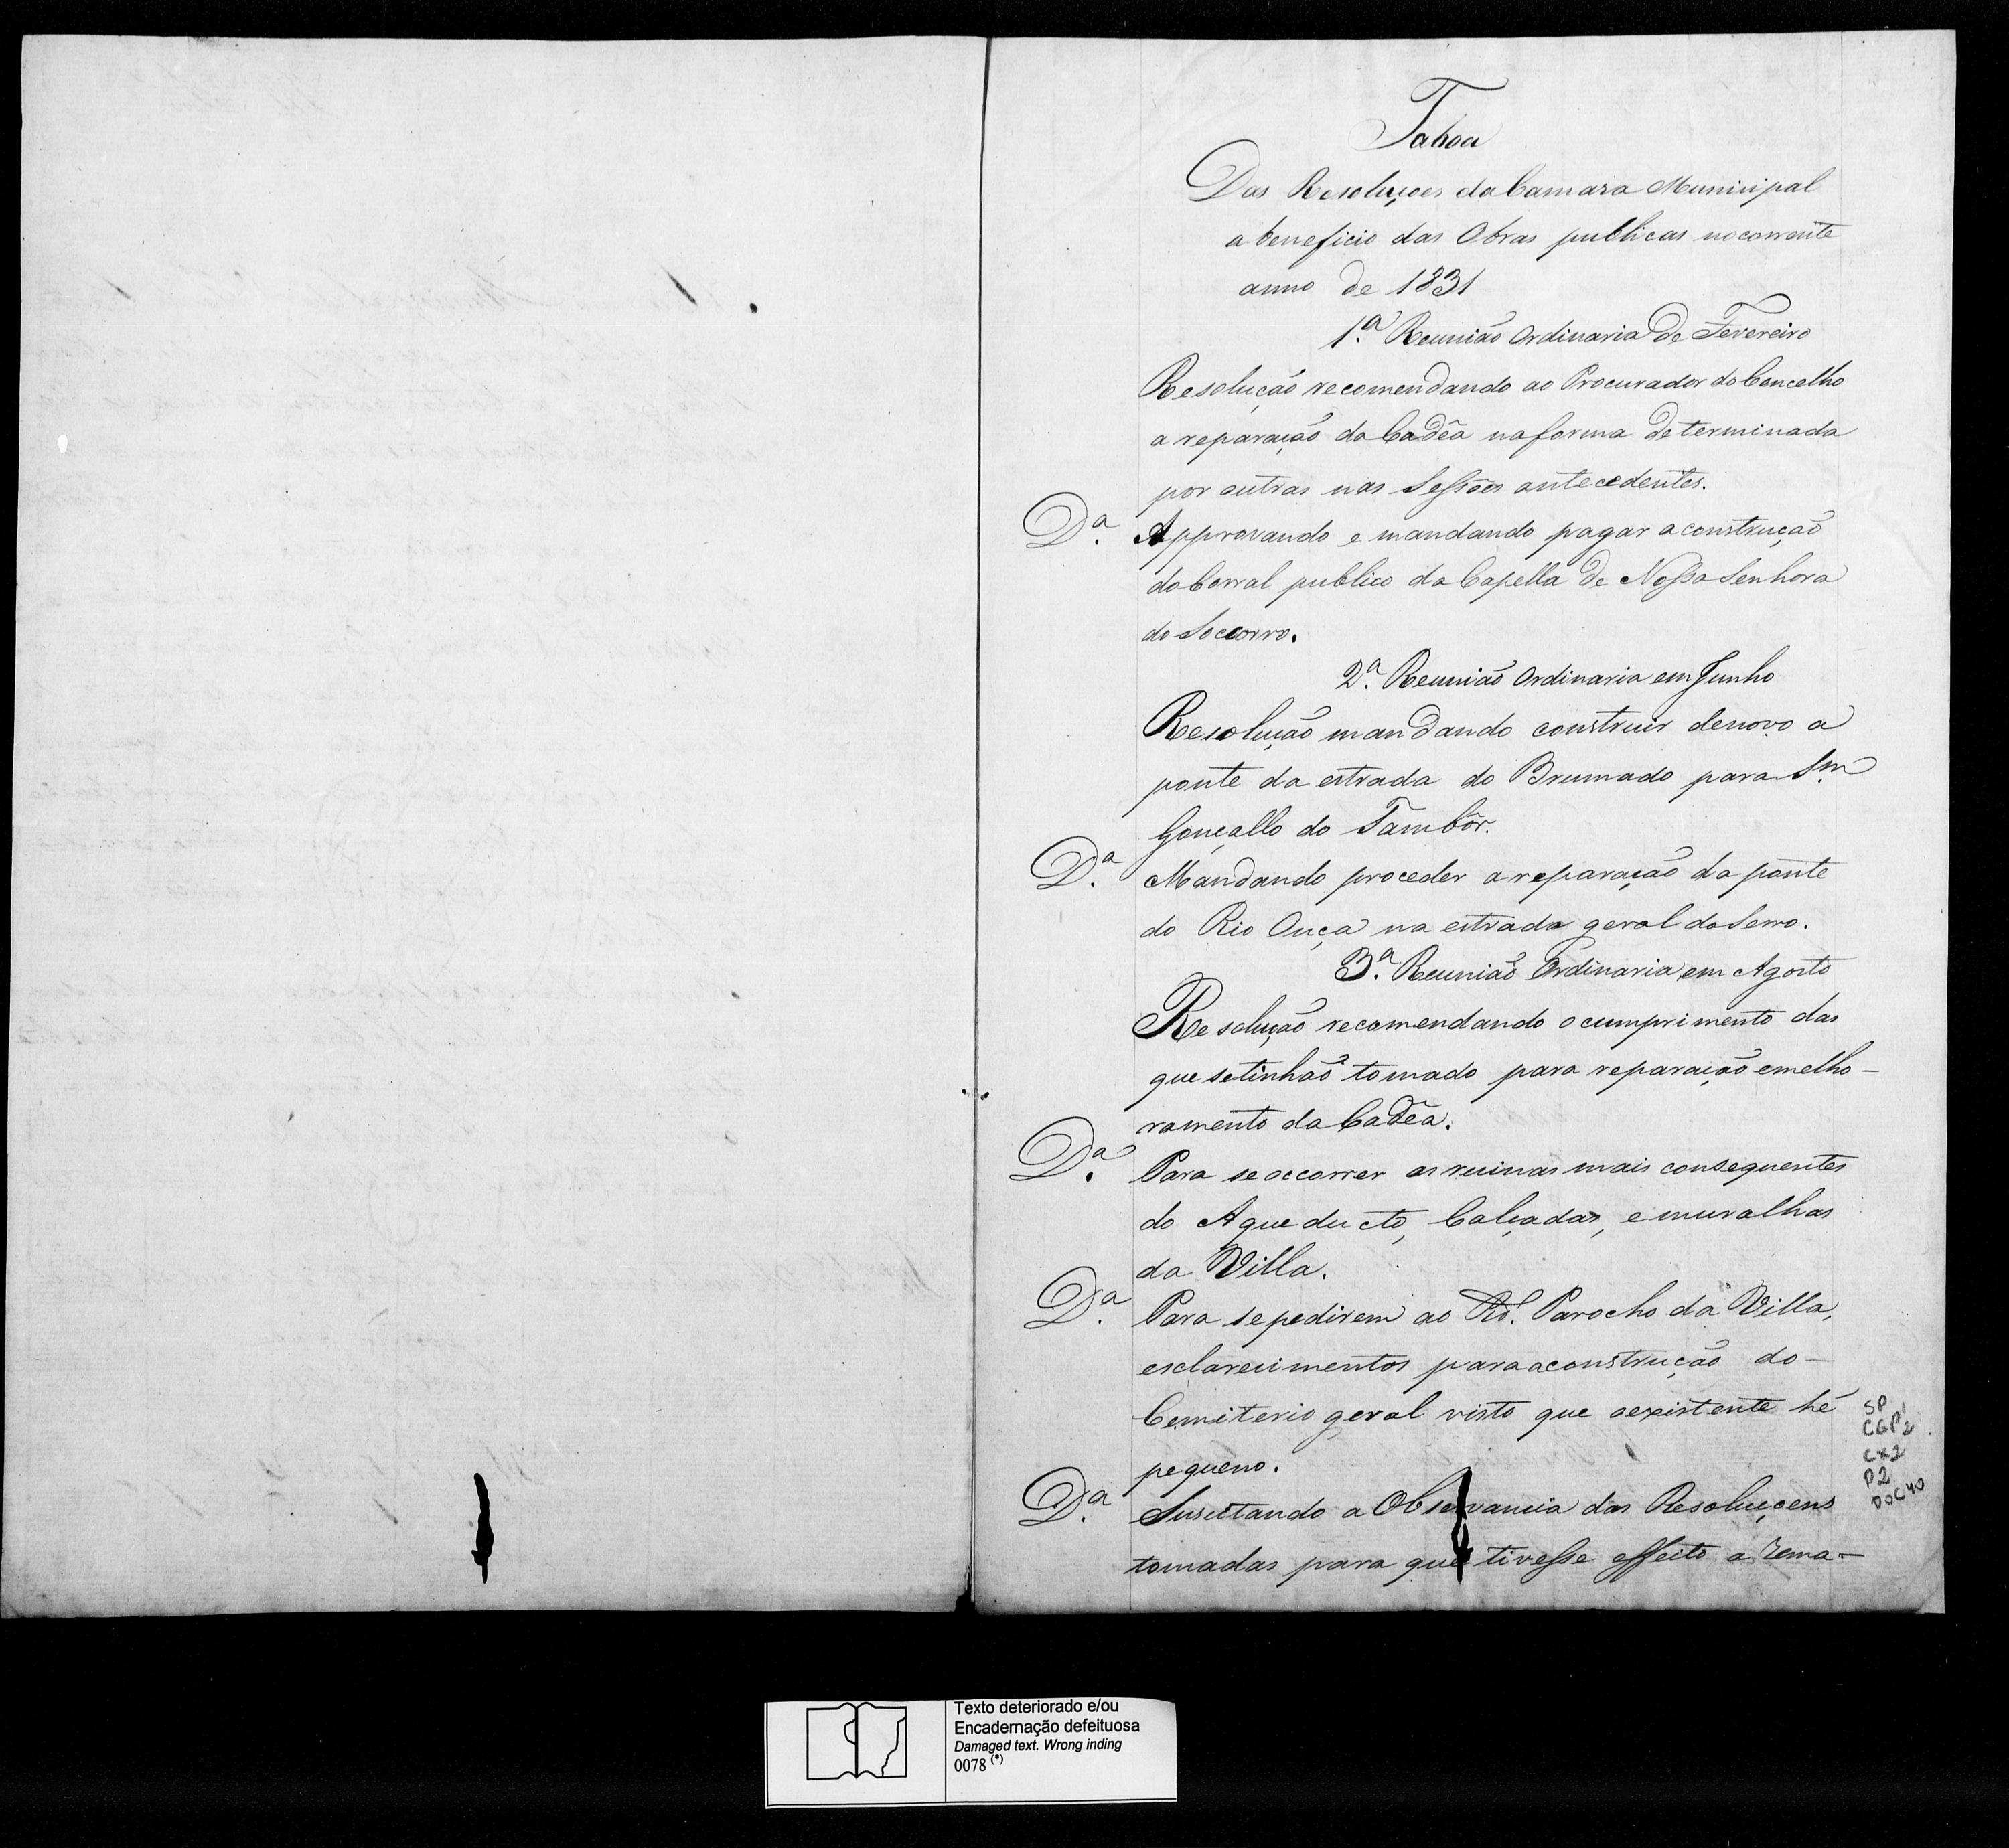 Taboa
Das Resoluçoes da Camara Municipal
a beneficio das Obras publicas nocorrente
anno de 1831
1.ª Reunião Ordinaria de Fevereiro
Resolução recomendando ao Procurador do Concelho
a reparação da Cadêa na forma determinada
por outras nas Sessões antecedentes.
D.ª Approvando e mandando pagar a construção
do Corral publico da Capella de Nossa Senhora
do Soccorro.
2.ª Reunião Ordinaria em Junho
Resolução mandando construir denovo a
ponte da estrada do Brumado para Sm
Gonçallo do Tambôr.
D.ª Mandando proceder a reparação da ponte
do Rio Onça na estrada geral do Serro.
3.ª Reunião Ordinaria em Agosto
Resolução recomendando o cumprimento das
que setinhaõ tomado para reparação emelho-
ramento da Cadêa.
D.ª Para se occorrer as ruinas mais consequentes
do Aqueducto, Calçadas, e muralhas
da Villa.
D.ª Para sepedirem ao Rd.º Parocho da Villa,
esclarecimentos para a construção do
Cemiterio geral visto que o existente hé
pequeno.
D.ª Suscitando a Observancia das Resoluçoens
tomadas para que tivesse effeito a rema-
SP
CGP2
CX2
P2
DOC40
Texto deteriorado e/ou
Encadernação defeituosa
Damaged text. Wrong inding
0078 (*)